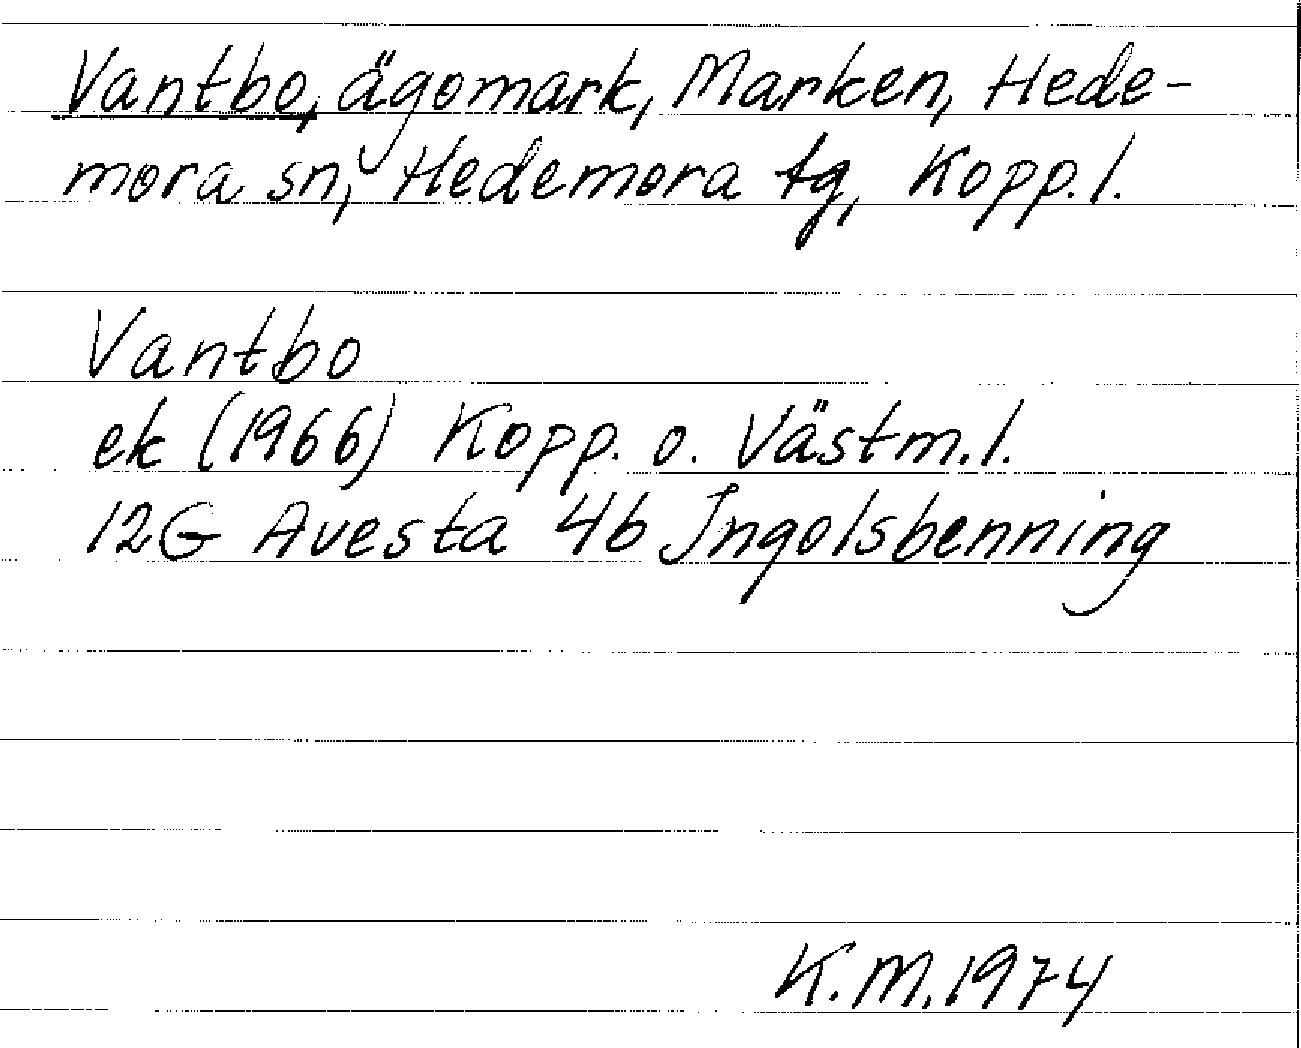 Vantbo, ägomark, Marken, Hede-
mora sn, Hedemora tg, Kopp. l.
Vantbo
ek (1966) Kopp. o. Västm. l.
12G Avesta 4b Ingolsbenning
K. M. 1974